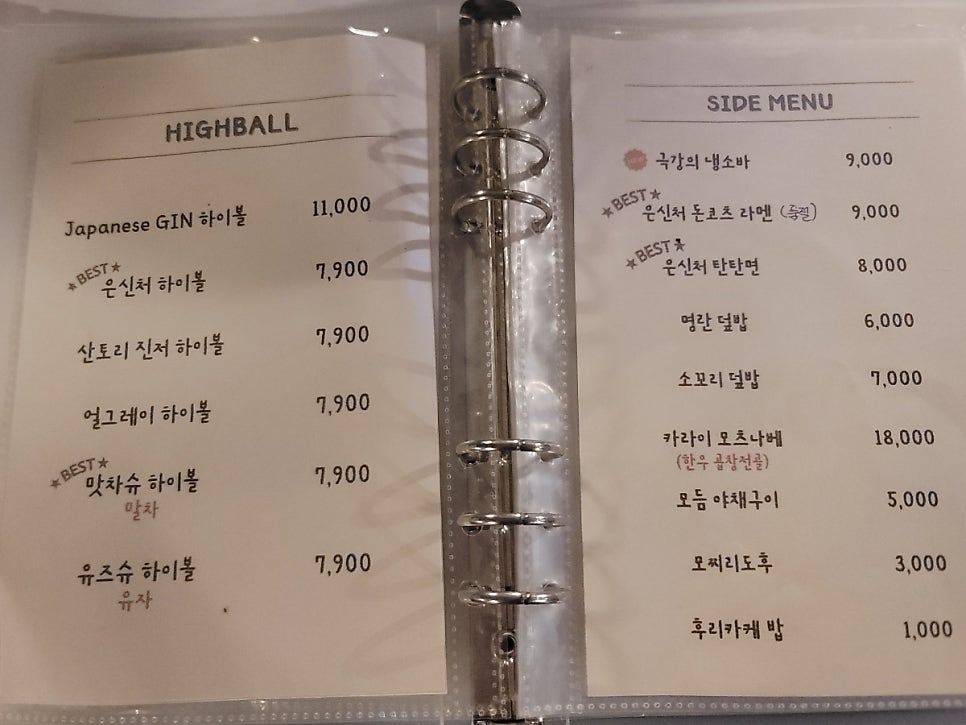 HIGHBALL
Japanese GIN 하이볼 11,000
★BEST★
은신처 하이볼 7,900
산토리 진저 하이볼 7,900
얼그레이 하이볼 7,900
★BEST★
맛차슈 하이볼 7,900
말차
유즈슈 하이볼 7,900
유자
SIDE MENU
극강의 냉소바 9,000
★BEST★
은신처 돈코츠 라멘 (품절) 9,000
★BEST★
은신처 탄탄면 8,000
명란 덮밥 6,000
소꼬리 덮밥 7,000
카라이 모츠나베 18,000
(한우 곱창전골)
모듬 야채구이 5,000
모찌리도후 3,000
후리카케 밥 1,000